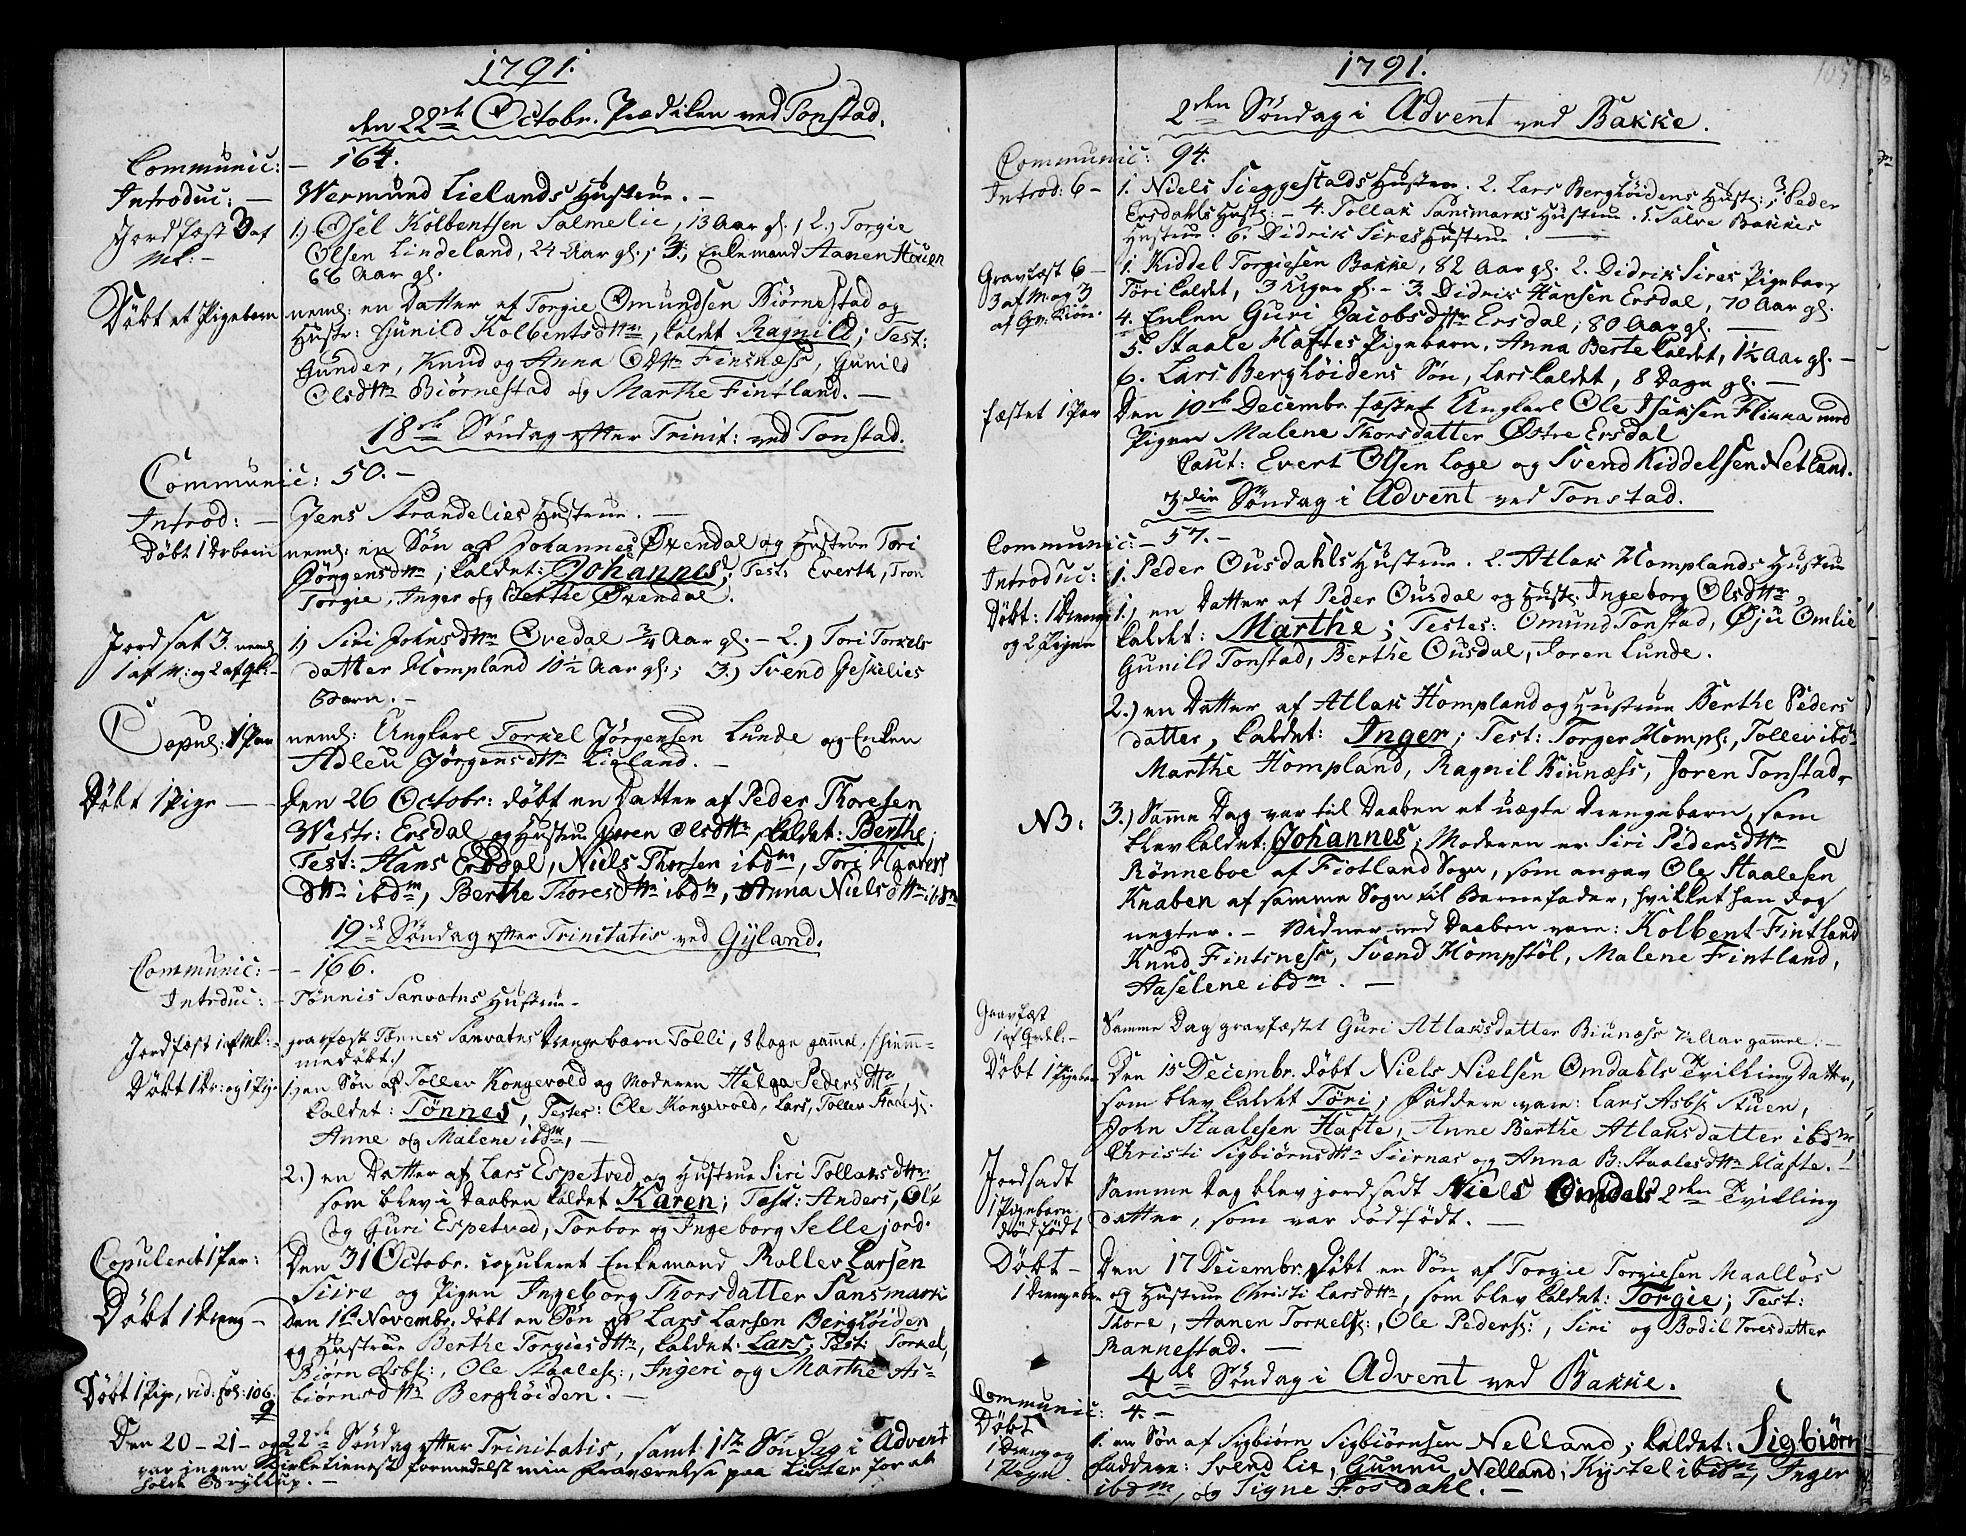 1791.
den 22de Octobr. Prædiken ved Tonstad.
Communic: - 164.
Introduc: - Wermund Lielands Hustrue. -
Jordfæst 3 af Mk: -
1) Osel Kolbentsen Salmelie, 13 Aar gl., 2.) Torgie
Olsen Lindeland, 24 Aar gl.; 3., Enkemand Aanen Houen
66 Aar gl.
Døbt et Pigebarn neml: en Datter af Torgie Omundsen Biørnestad og
Hustr: Gunild Kolbentsdttr, kaldet Ragnild; Test:
Gunder, Knud og Anna Finsnæss, Gunild
Olsdttr Biørnestad og Marthe Fintland. -
18de Søndag efter Trinit: ved Tonstad.
Communic: 50. -
Introd: - Jens Strandelies Hustrue. -
Døbt 1 Drbarn neml: en Søn af Johannes Øxendal og Hustrue Tori
Jørgensdttr; kaldet: Johannes; Test: Everth, Tron
Torgie, Inger og Berthe Øxendal.
Jordsat 3. neml
1 af M: og 2 af Qk: -
1) Siri Johnsdttr Øvedal 3/4 Aar gl. - 2.) Tori Torkels
datter Hompland 10 1/2 Aar gl.; 3.) Svend Geskelies
Barn. -
Copul: 1 Par neml: Ungkarl Torkel Jørgensen Lunde og Enken
Adleu Jørgensdttr Lieland. -
Døbt 1 Pige - den 26 Octobr: døbt en Datter af Peder Thoresen
Westr: Ersdal og Hustrue Joren Olsdttr, kaldet: Berthe;
Test: Hans Ersdal, Niels Thorsen ibdm, Tori
dttr ibdm, Berthe Thoresdttr ibdm, Anna Nielsdttr ibdm
19de Søndag efter Trinitatis ved Gyland.
Communic: - - 166.
Introduc: - Tønnis Sanvatns Hustrue -
Jordfæst 1 af Mk: - gravfæst Tønnes Sanvatns Drengebarn Tolli, 8 Dage gammel, /hiem-
medøbt./
Døbt 1 Dr: og 1 Pige 1.) en Søn af Tollev Kongevold og Moderen Helga Pedersdttr,
kaldet: Tønnes, Testes: Ole Kongevold, Lars, Tollev
Anne og Malene ibdm, -
2.) en Datter af Lars Espetved og Hustrue Siri Tollaksdttr
som blev i Daaben kaldet Karen; Test: Anders, Ole
og Guri Espetved, Torbor og Ingeborg Sellejord.
Copuleret 1 Par: Den 31 Octobr. copuleret Enkemand Rollev Larsen
Siire og Pigen Ingeborg Thorsdatter Sansmark
Døbt 1 Dreng - Den 1ste Novembr. døbt en Søn af Lars Larsen Berghøiden
og Hustrue Berthe Torgiesdttr, kaldet: Lars; Test: Torkel,
Biørn Asbs:, Ole Staales:, Ingeri og Marthe As-
biørnsdttr Berghøiden. -
Døbt 1 Pige, vid: fol: 106.
Den 20 - 21 - og 22de Søndag efter Trinitatis, samt 1ste Søndag i Advent
var ingen Kirketieneste formedelst min Fraværelse paa Lister for at
holde Bryllup. -
1791.
2den Søndag i Advent ved Bakke.
Communic: 94.
Introd: 6 - 1. Niels Sieggestads Hustrue. 2. Lars Berghøidens Hustr:, 3. Peder
Ersdahls Hustr: - 4. Tollak Sansmarks Hustrue. 5. Salve Bakkes
Hustrue. 6. Didrik Sires Hustrue. -
Gravfæst 6 -
3 af M og 3
af Qv: Kiøn.
1. Kiddel Torgiesen Bakke, 82 Aar gl. 2. Didrik Sires Pigebarn
Tori kaldet, 3 Uger gl. - 3. Didrik Hansen Ersdal, 70 Aar gl.
4. Enken Guri Jacobsdttr Ersdal, 80 Aar gl. -
5. Staale Haftes Pigebarn, Anna Berte kaldet, 1 1/2 Aar gl. -
6. Lars Berghøidens Søn, Lars kaldet, 8 Dage gl. -
fæstet 1 Par Den 10de Decembr. fæstet Ungkarl Ole Isaksen Flikka med
Pigen Malene Thorsdatter Østre Ersdal
Caut: Evert Olsen Loge og Svend Kiddelsen Netland.
3die Søndag i Advent ved Tonstad.
Communic: - 57. -
Introduc: 1. Peder Ousdahls Hustrue. 2. Atlak Homplands Hustrue
Døbt: 1 Dreng
og 2 Piger
1.) en Datter af Peder Ousdal og Hustr: Ingeborg Olsdttr
kaldet: Marthe; Testes: Omund Tonstad, Øju Omlie
Gunild Tonstad, Berthe Ousdal, Joren Lunde.
2.) en Datter af Atlak Hompland og Hustrue Berthe Peders
datter, kaldet: Inger; Test: Torger Hompl:, Tollev ibdm
Marthe Hompland, Ragnil Biunæss, Joren Tonstad.
NB: 3.) Samme Dag var til Daaben et uægte Drengebarn, som
blev kaldet: Johannes; Moderen er Siri Pedersdttr
Rønneboe af Fiotland Sogn, som angav Ole Staalesen
Knaben af samme Sogn til Barnefader, hvilket han dog
negter. - Vidner ved Daaben vare: Kolbent Fintland
Knud Fintsness, Svend Hompstøl, Malene Fintland,
Aaselene ibdm. -
Gravfæst
1 af Qvkl. - Samme Dag gravfæstet Guri Atlaksdatter Biunæss 71 Aar gammel. -
Døbt 1 Pigebarn Den 15 Decembr. døbt Niels Nielsen Omdahls Tvilling Datter,
som blev kaldet Tori; Faddere vare: Lars Asbs: Stuen,
John Staalesen Hafte, Anne Berthe Atlaksdatter ibdm,
Christi Sigbiørnsdttr Seirnæs og Anna B: Staalesdttr Hafte. -
Jordsadt
1 Pigebarn
dødfødt
Samme Dag blev jordsadt Niels Omdals 2den Tvilling
datter, som var dødfødt. -
Døbt -
1 Drengebn
Den 17 Decembr. døbt en Søn af Torgie Torgiesen Maalløs
og Hustrue Christi Larsdttr, som blev kaldet: Torgie; Test:
Thore, Aanen Torkels:, Ole Peders:, Siri og Bodil Toresdatter
Rannestad. -
4de Søndag i Advent ved Bakke.
Communic: 4. -
Døbt
1 Dreng og
1 Pige.
1. en Søn af Sigbiørn Sigbiørnsen Nelland; kaldet: Sigbiørn
Faddere: Svend Lie, Gunnu Nelland, Kystel ibdm, Inger
ibdm, og Signe Fosdahl. -